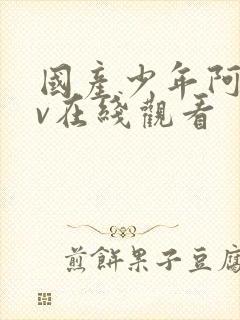 國産少年阿
v在綫觀看
煎餅果子豆腐